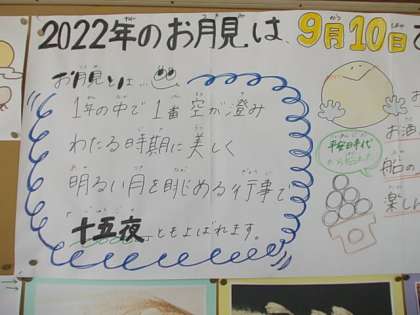 2022年のお月見は、9月10日で
お月見とは…
1年の中で1番空が澄み
わたる時期に美しく
明るい月を眺める行事で
十五夜ともよばれます。
平安時代
から
お
お酒
船の
楽しん